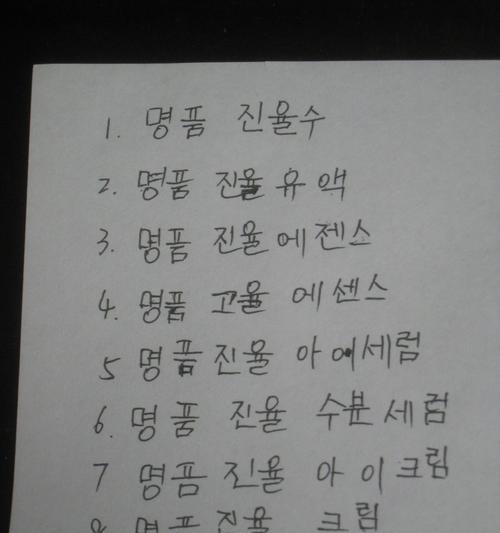 1. 명품 진율수
2. 명품 진율 유액
3. 명품 진율 에젠스
4. 명품 고율 에센스
5 명품 진율 아이세럼
6. 명품 진율 수분세럼
7 명품 진율 아이크림
8 명품 진율 크림